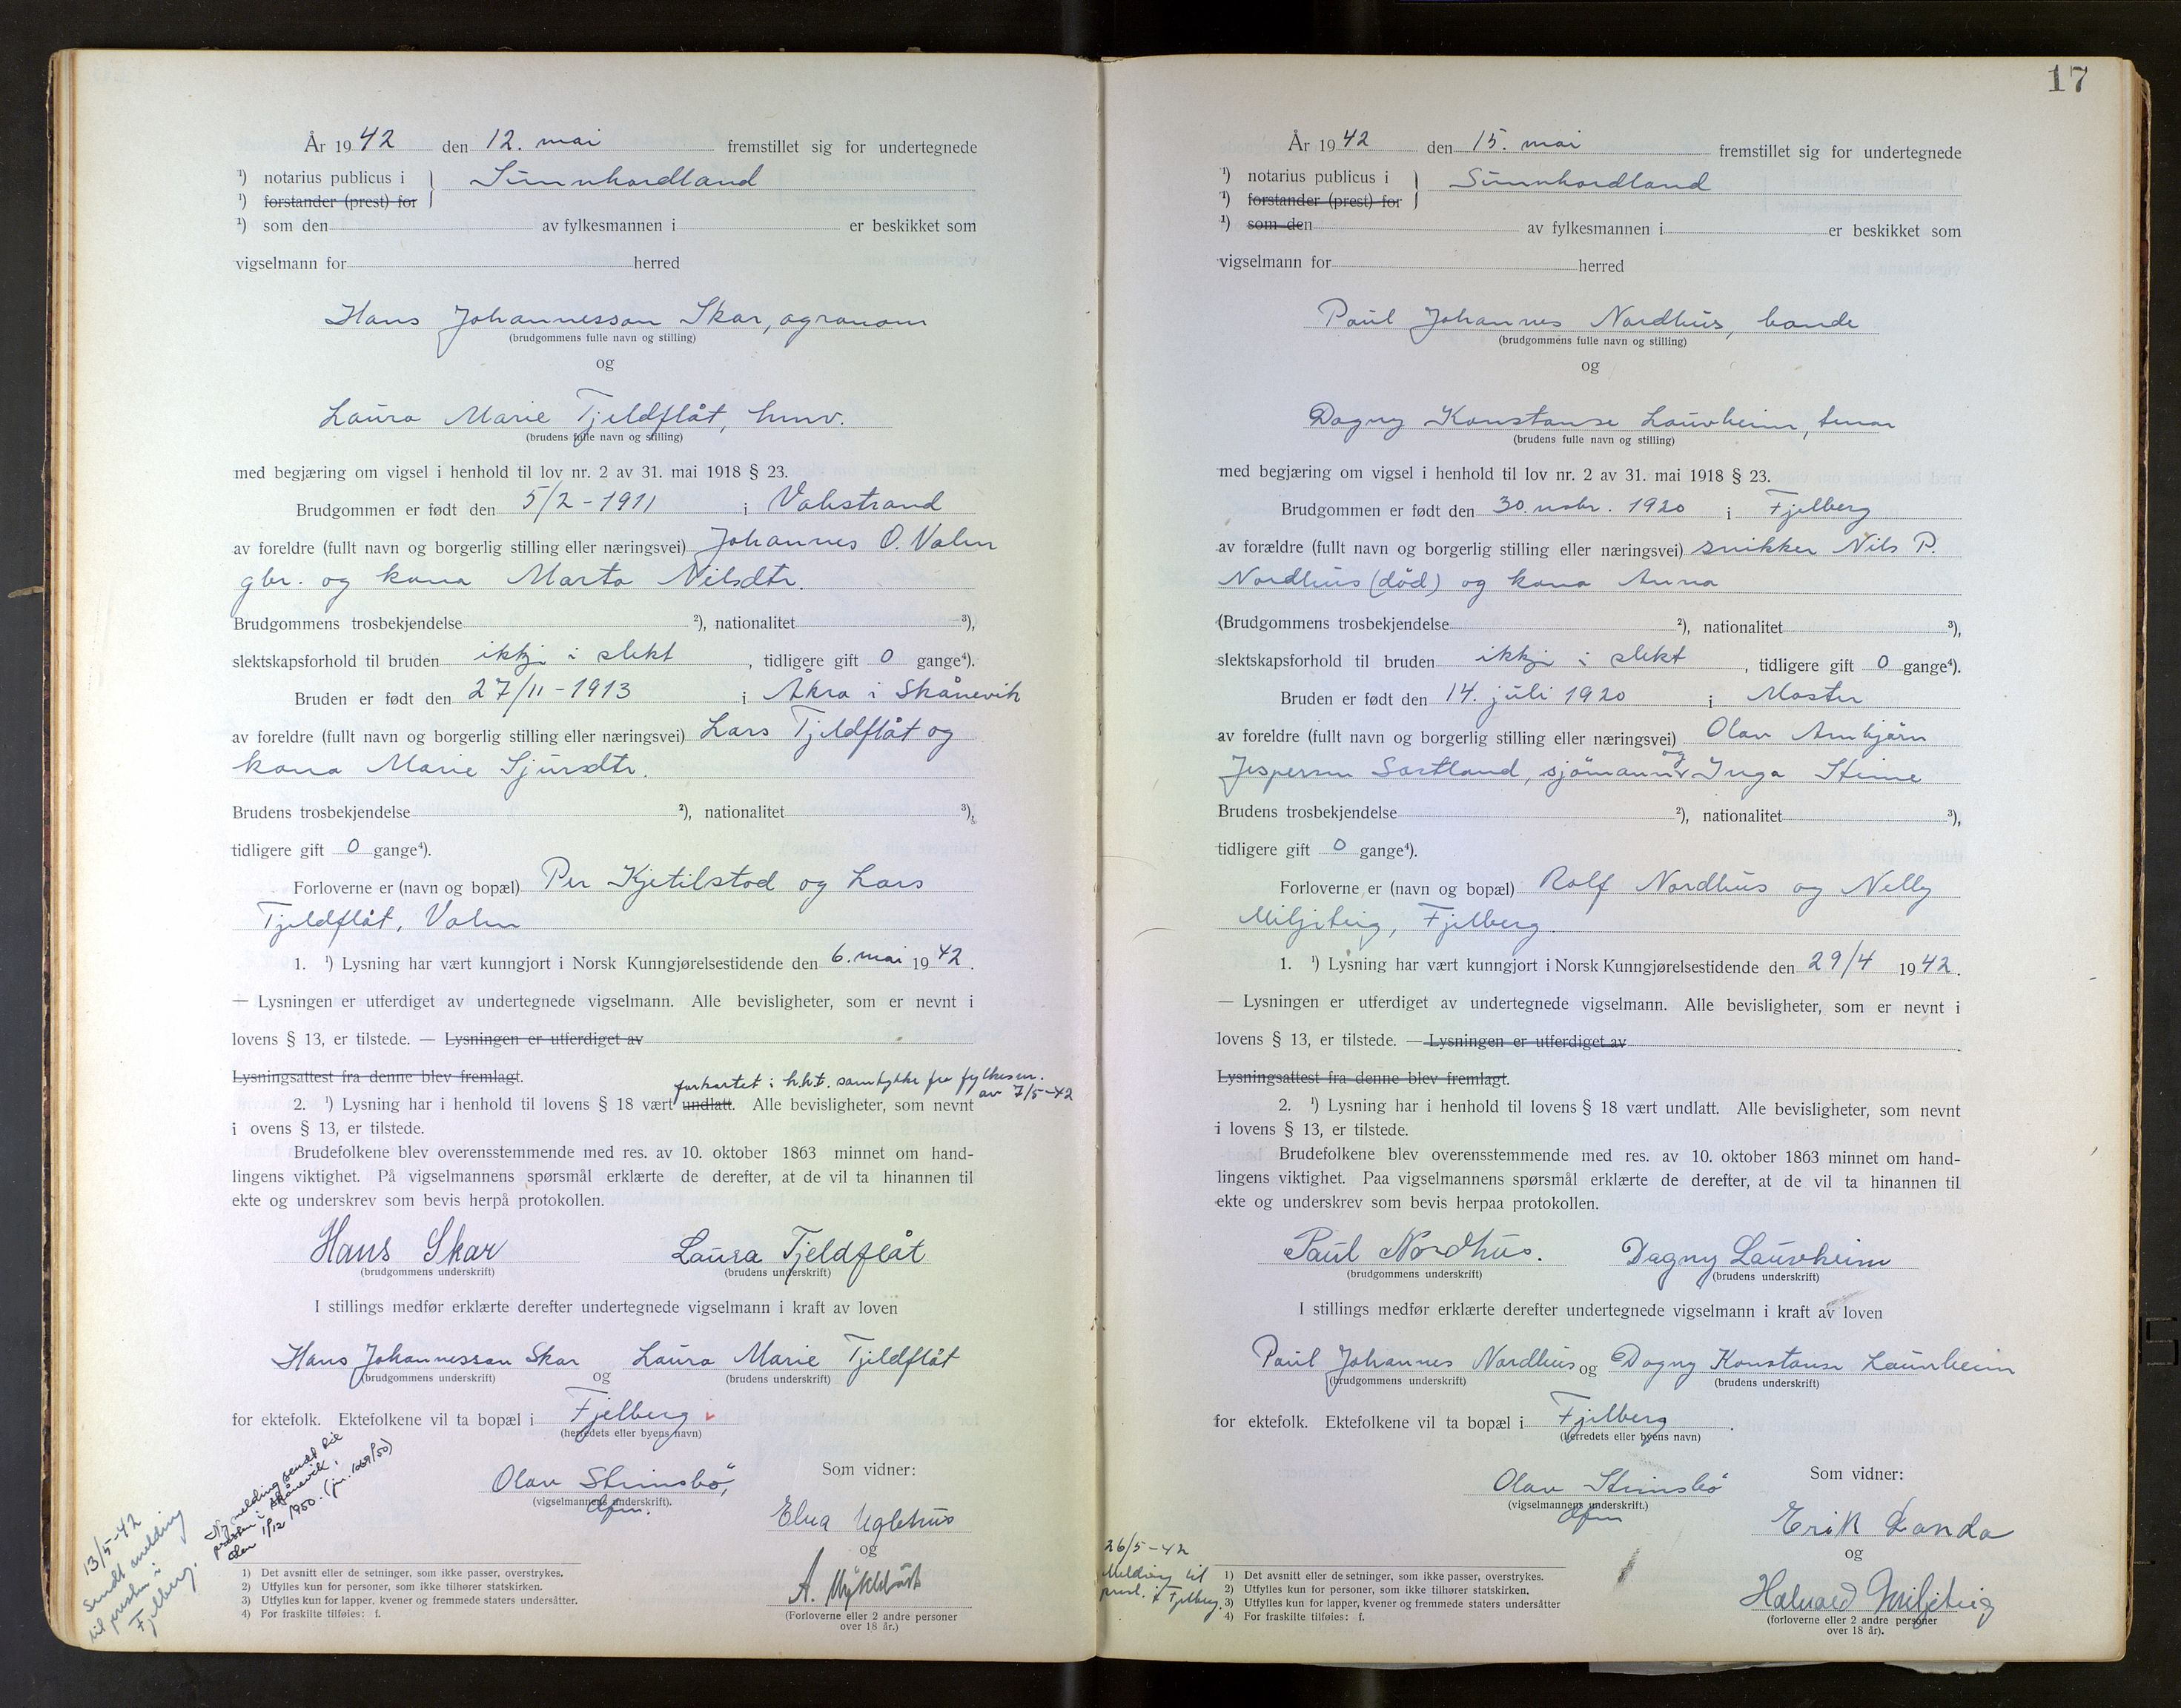 År 1942 den 12. mai fremstillet sig for undertegnede
¹) notarius publicus i } Sunnhordland
¹) forstander (prest) for
¹) som den av fylkesmannen i er beskikket som
vigselmann for herred
Hans Johannesson Skar, agronom
(brudgommens fulle navn og stilling)
og
Laura Marie Tjeldflåt, hmv.
(brudens fulle navn og stilling)
med begjæring om vigsel i henhold til lov nr. 2 av 31. mai 1918 § 23.
Brudgommen er født den 5/2 - 1911 i Vakstrand
av foreldre (fullt navn og borgerlig stilling eller næringsvei) Johannes O. Valen
gbr. og kona Marta Nilsdtr.
Brudgommens trosbekjendelse ²), nationalitet ³),
slektskapsforhold til bruden ikkje i slekt, tidligere gift 0 gange⁴).
Bruden er født den 27/11 - 1913 i Åkra i Skånevik
av foreldre (fullt navn og borgerlig stilling eller næringsvei) Lars Tjeldflåt og
kona Marie Sjursdtr.
Brudens trosbekjendelse ²), nationalitet ³),
tidligere gift 0 gange⁴).
Forloverne er (navn og bopæl) Per Kjetilstad og Lars
Tjeldflåt, Valen
1. ¹) Lysning har vært kunngjort i Norsk Kunngjørelsestidende den 6. mai 1942.
— Lysningen er utferdiget av undertegnede vigselmann. Alle bevisligheter, som er nevnt i
lovens § 13, er tilstede. — Lysningen er utferdiget av
Lysningsattest fra denne blev fremlagt.
forkortet i h.h.t. samtykke fra fylkesm.
av 7/5-42
2. ¹) Lysning har i henhold til lovens § 18 vært undlatt. Alle bevisligheter, som nevnt
i ovens § 13, er tilstede.
Brudefolkene blev overensstemmende med res. av 10. oktober 1863 minnet om hand-
lingens viktighet. På vigselmannens spørsmål erklærte de derefter, at de vil ta hinannen til
ekte og underskrev som bevis herpå protokollen.
Hans Skar Laura Tjeldflåt
(brudgommens underskrift) (brudens underskrift)
I stillings medfør erklærte derefter undertegnede vigselmann i kraft av loven
Hans Johannesson Skar og Laura Marie Tjeldflåt
(brudgommens underskrift) (brudens underskrift)
for ektefolk. Ektefolkene vil ta bopæl i Fjelberg
(herredets eller byens navn)
Som vidner:
Olav Steinsbö,
(vigselmannens underskrift).
dfm.
Elna Uglehus
og
A. Myklebust
(Forloverne eller 2 andre personer
over 18 år.)
Ny melding sendt til
presten i Skånevik,
den 1/12 1950. (jr. 1069/50)
13/5-42
Sendt melding
til presten i
Fjelberg.
1) Det avsnitt eller de setninger, som ikke passer, overstrykes.
2) Utfylles kun for personer, som ikke tilhører statskirken.
3) Utfylles kun for lapper, kvener og fremmede staters undersåtter.
4) For fraskilte tilføies: f.
17
År 1942 den 15. mai fremstillet sig for undertegnede
¹) notarius publicus i } Sunnhordland
¹) forstander (prest) for
¹) som den av fylkesmannen i er beskikket som
vigselmann for herred
Paul Johannes Nordhus, bonde
(brudgommens fulle navn og stilling)
og
Dagny Konstanse Lauvheim, tenar
(brudens fulle navn og stilling)
med begjæring om vigsel i henhold til lov nr. 2 av 31. mai 1918 § 23.
Brudgommen er født den 30. nobr. 1920 i Fjelberg
av forældre (fullt navn og borgerlig stilling eller næringsvei) snikker Nils P.
Nordhus (död) og kona Anna
(Brudgommens trosbekjendelse ²), nationalitet ³),
slektskapsforhold til bruden ikkje i slekt, tidligere gift 0 gange⁴).
Bruden er født den 14. juli 1920 i Moster
av foreldre (fullt navn og borgerlig stilling eller næringsvei) Olav Arnbjörn
Jespersen Sortland, sjömann og Inga Steine
Brudens trosbekjendelse ²), nationalitet ³),
tidligere gift 0 gange⁴).
Forloverne er (navn og bopæl) Rolf Nordhus og Nelly
Miljeteig, Fjelberg.
1. ¹) Lysning har vært kunngjort i Norsk Kunngjørelsestidende den 29/4 1942.
— Lysningen er utferdiget av undertegnede vigselmann. Alle bevisligheter, som er nevnt i
lovens § 13, er tilstede. — Lysningen er utferdiget av
Lysningsattest fra denne blev fremlagt.
2. ¹) Lysning har i henhold til lovens § 18 vært undlatt. Alle bevisligheter, som nevnt
i lovens § 13, er tilstede.
Brudefolkene blev overensstemmende med res. av 10. oktober 1863 minnet om hand-
lingens viktighet. Paa vigselmannens spørsmål erklærte de derefter, at de vil ta hinannen til
ekte og underskrev som bevis herpaa protokollen.
Paul Nordhus. Dagny Lauvheim
(brudgommens underskrift) (brudens underskrift)
I stillings medfør erklærte derefter undertegnede vigselmann i kraft av loven
Paul Johannes Nordhus og Dagny Konstanse Lauvheim
(brudgommens underskrift) (brudens underskrift)
for ektefolk. Ektefolkene vil ta bopæl i Fjelberg.
(herredets eller byens navn)
Som vidner:
Olav Steinsbö
(vigselmannens underskrift.)
dfm
Erik Landa
og
Halvard Miljeteig
(forloverne eller 2 andre personer
over 18 år).
26/5-42
Melding til
prest. i Fjelberg.
1) Det avsnitt eller de setninger, som ikke passer, overstrykes.
2) Utfylles kun for personer, som ikke tilhører statskirken.
3) Utfylles kun for lapper, kvener og fremmede staters undersåtter
4) For fraskilte tilføies: f.